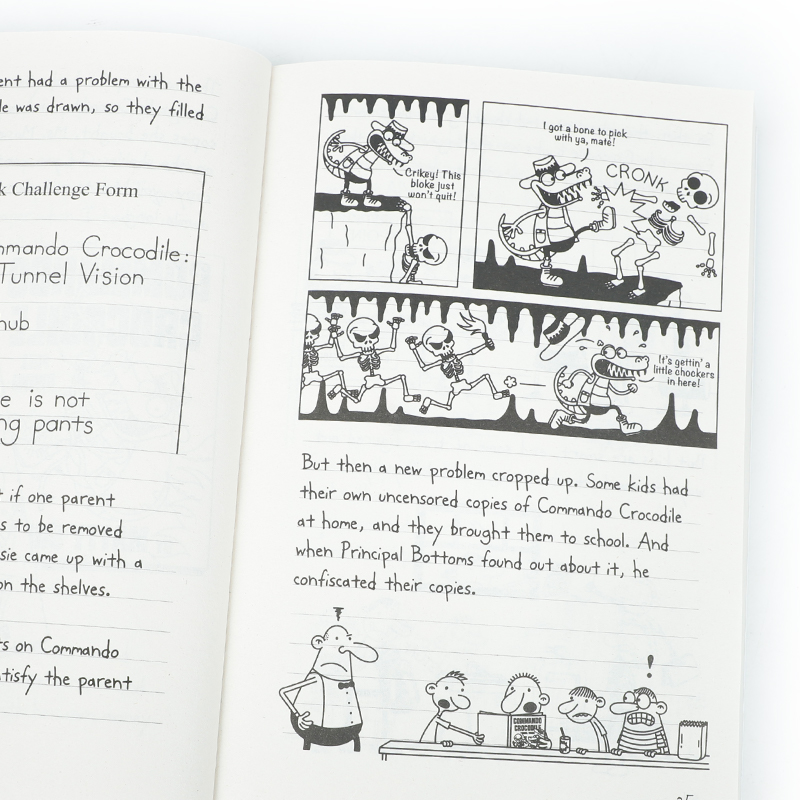 ent had a problem with the
le was drawn, so they filled
k Challenge Form
mmando Crocodile:
Tunnel Vision
hub
e is not
ng pants
t if one parent
s to be removed
sie came up with a
on the shelves.
ts on Commando
tisfy the parent
Crikey! This
bloke just
won't quit!
I got a bone to pick
with ya, mate!
CRONK
It's gettin' a
little chockers
in here!
But then a new problem cropped up. Some kids had
their own uncensored copies of Commando Crocodile
at home, and they brought them to school. And
when Principal Bottoms found out about it, he
confiscated their copies.
!
COMMANDO
CROCODILE